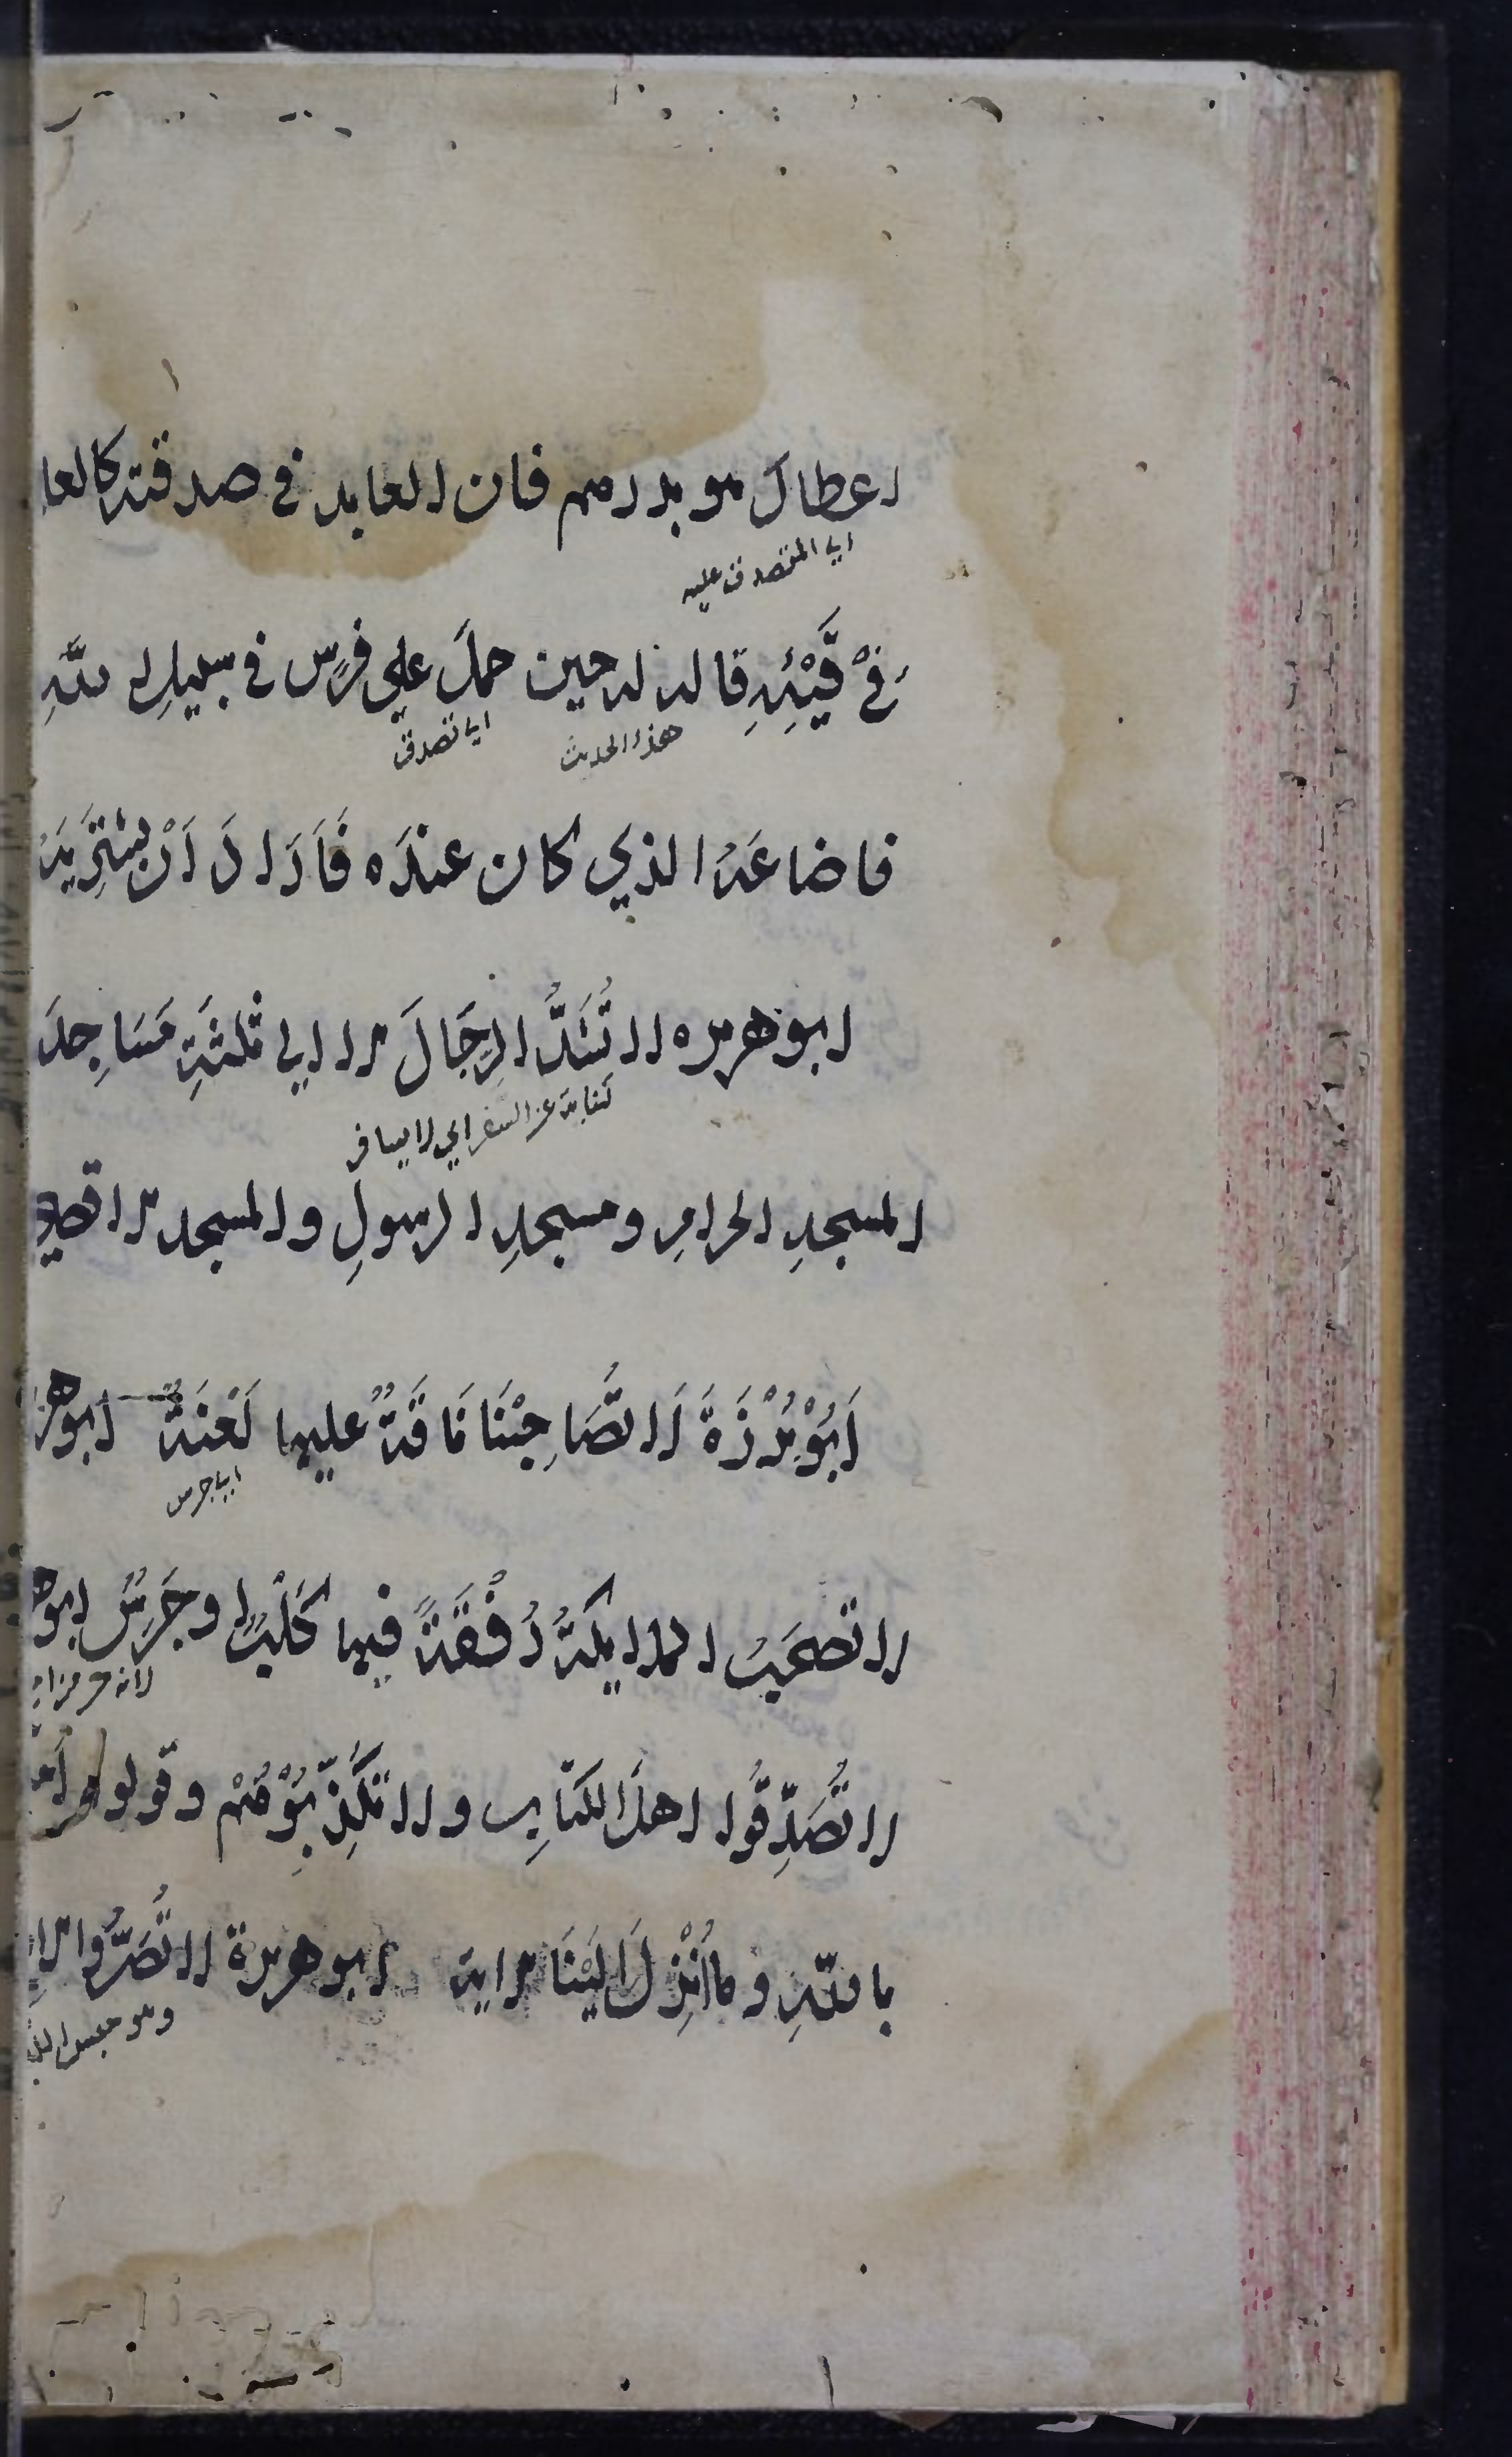 اعطاكَ هو بدرهم فان العايد في صدقته كالعا
اي المتصدق عليه
فِيْ قَيْئِهِ قاله له حين حملَ علي فرَسٍ في سبيلِ اللّهِ
هذا الحديث
اي تصدق
فاضاعَهُ الذي كان عندَه فَاَرَادَ اَنْ يشتَرِيَهُ
ابو هريره لا تُشَدُّ الرِحَالُ الا الي ثلثَةِ مَسَاجِدَ
كناية عن السفر اي لا يسافر
المسجدِ الحرامِ ومسجدِ الرسولِ والمسجد الاقصي
اَبُوْ بُرْزَةَ لَا تُصَاحِبْنَا نَاقَةٌ عليها لَعْنَةٌ ابو هر
اي جرس
لا تصحَبُ الملايكةُ رُفْقَةً فيها كَلْبٌ او جَرَسٌ ابو ه
لانه مزما
لا تُصَدِّقُوا اهلَ الكتابِ ولا تكَذِّبُوْهُمْ وقولوا
باللّهِ وما اُنْزِلَ اِلَيْنَا الاية ابو هريرة لا تُصَرُّوا الاِ
وهو حبس اللب